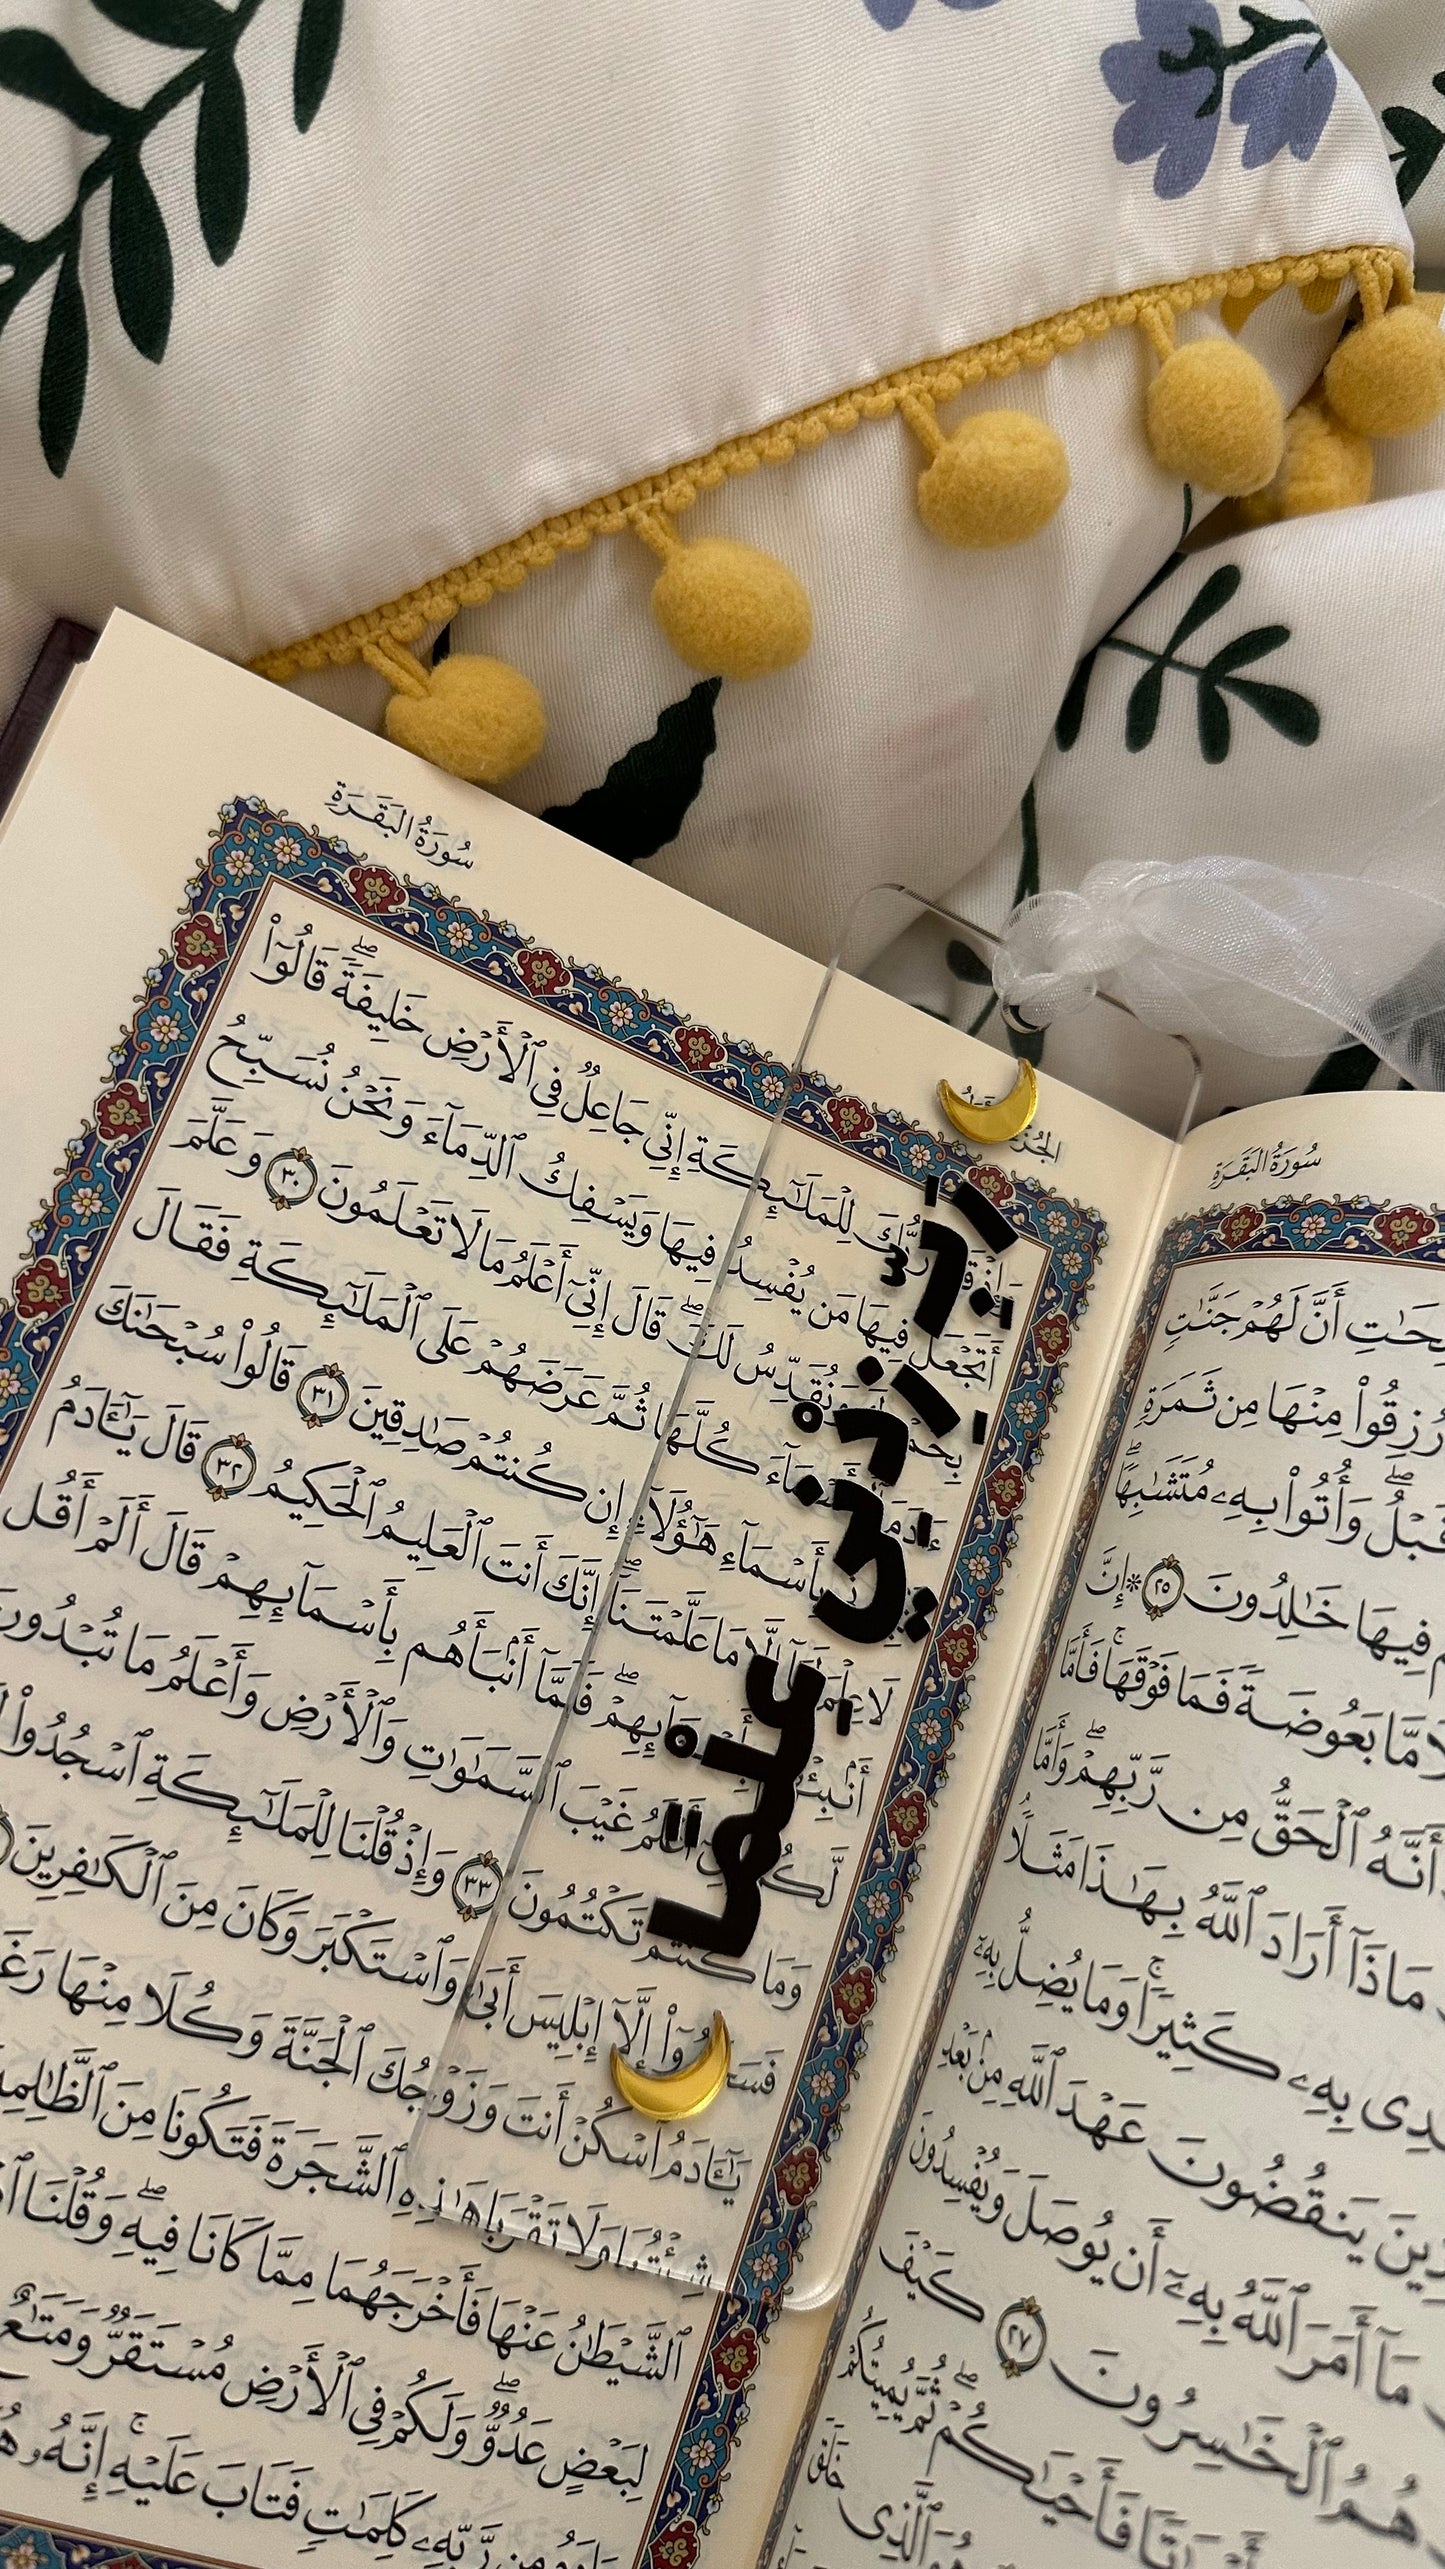 سُورَةُ البَقَرَةِ
أَنَّ لَهُمْ جَنَّٰتٍ
رُزِقُوا۟ مِنْهَا مِن ثَمَرَةٍ
قَبْلُ ۖ وَأُتُوا۟ بِهِۦ مُتَشَٰبِهًا
فِيهَا خَٰلِدُونَ ٢٥ ۞ إِنَّ
مَّا بَعُوضَةً فَمَا فَوْقَهَا ۚ فَأَمَّا
أَنَّهُ ٱلْحَقُّ مِن رَّبِّهِمْ ۖ وَأَمَّا
مَاذَآ أَرَادَ ٱللَّهُ بِهَٰذَا مَثَلًا
بِهِۦ كَثِيرًا ۚ وَمَا يُضِلُّ بِهِۦٓ
يَنقُضُونَ عَهْدَ ٱللَّهِ مِنۢ بَعْدِ
مَآ أَمَرَ ٱللَّهُ بِهِۦٓ أَن يُوصَلَ وَيُفْسِدُونَ
هُمُ ٱلْخَٰسِرُونَ ٢٧ كَيْفَ
فَأَحْيَٰكُمْ ۖ ثُمَّ يُمِيتُكُمْ
هُوَ ٱلَّذِى خَلَقَ
سُورَةُ البَقَرَةِ
وَإِذْ قَالَ رَبُّكَ لِلْمَلَٰٓئِكَةِ إِنِّى جَاعِلٌ فِى ٱلْأَرْضِ خَلِيفَةً ۖ قَالُوٓا۟
أَتَجْعَلُ فِيهَا مَن يُفْسِدُ فِيهَا وَيَسْفِكُ ٱلدِّمَآءَ وَنَحْنُ نُسَبِّحُ
بِحَمْدِكَ وَنُقَدِّسُ لَكَ ۖ قَالَ إِنِّىٓ أَعْلَمُ مَا لَا تَعْلَمُونَ ٣٠ وَعَلَّمَ
ءَادَمَ ٱلْأَسْمَآءَ كُلَّهَا ثُمَّ عَرَضَهُمْ عَلَى ٱلْمَلَٰٓئِكَةِ فَقَالَ
أَنۢبِـُٔونِى بِأَسْمَآءِ هَٰٓؤُلَآءِ إِن كُنتُمْ صَٰدِقِينَ ٣١ قَالُوا۟ سُبْحَٰنَكَ
لَا عِلْمَ لَنَآ إِلَّا مَا عَلَّمْتَنَآ ۖ إِنَّكَ أَنتَ ٱلْعَلِيمُ ٱلْحَكِيمُ ٣٢ قَالَ يَٰٓـَٔادَمُ
أَنۢبِئْهُم بِأَسْمَآئِهِمْ ۖ فَلَمَّآ أَنۢبَأَهُم بِأَسْمَآئِهِمْ قَالَ أَلَمْ أَقُل
لَّكُمْ إِنِّىٓ أَعْلَمُ غَيْبَ ٱلسَّمَٰوَٰتِ وَٱلْأَرْضِ وَأَعْلَمُ مَا تُبْدُونَ
وَمَا كُنتُمْ تَكْتُمُونَ ٣٣ وَإِذْ قُلْنَا لِلْمَلَٰٓئِكَةِ ٱسْجُدُوا۟
فَسَجَدُوٓا۟ إِلَّآ إِبْلِيسَ أَبَىٰ وَٱسْتَكْبَرَ وَكَانَ مِنَ ٱلْكَٰفِرِينَ
يَٰٓـَٔادَمُ ٱسْكُنْ أَنتَ وَزَوْجُكَ ٱلْجَنَّةَ وَكُلَا مِنْهَا
شِئْتُمَا وَلَا تَقْرَبَا هَٰذِهِ ٱلشَّجَرَةَ فَتَكُونَا مِنَ ٱلظَّٰلِمِينَ
ٱلشَّيْطَٰنُ عَنْهَا فَأَخْرَجَهُمَا مِمَّا كَانَا فِيهِ ۖ وَقُلْنَا
لِبَعْضٍ عَدُوٌّ ۖ وَلَكُمْ فِى ٱلْأَرْضِ مُسْتَقَرٌّ وَمَتَٰعٌ
مِن رَّبِّهِۦ كَلِمَٰتٍ فَتَابَ عَلَيْهِ ۚ إِنَّهُۥ
رَبِّ زِدْنِي عِلْمًا